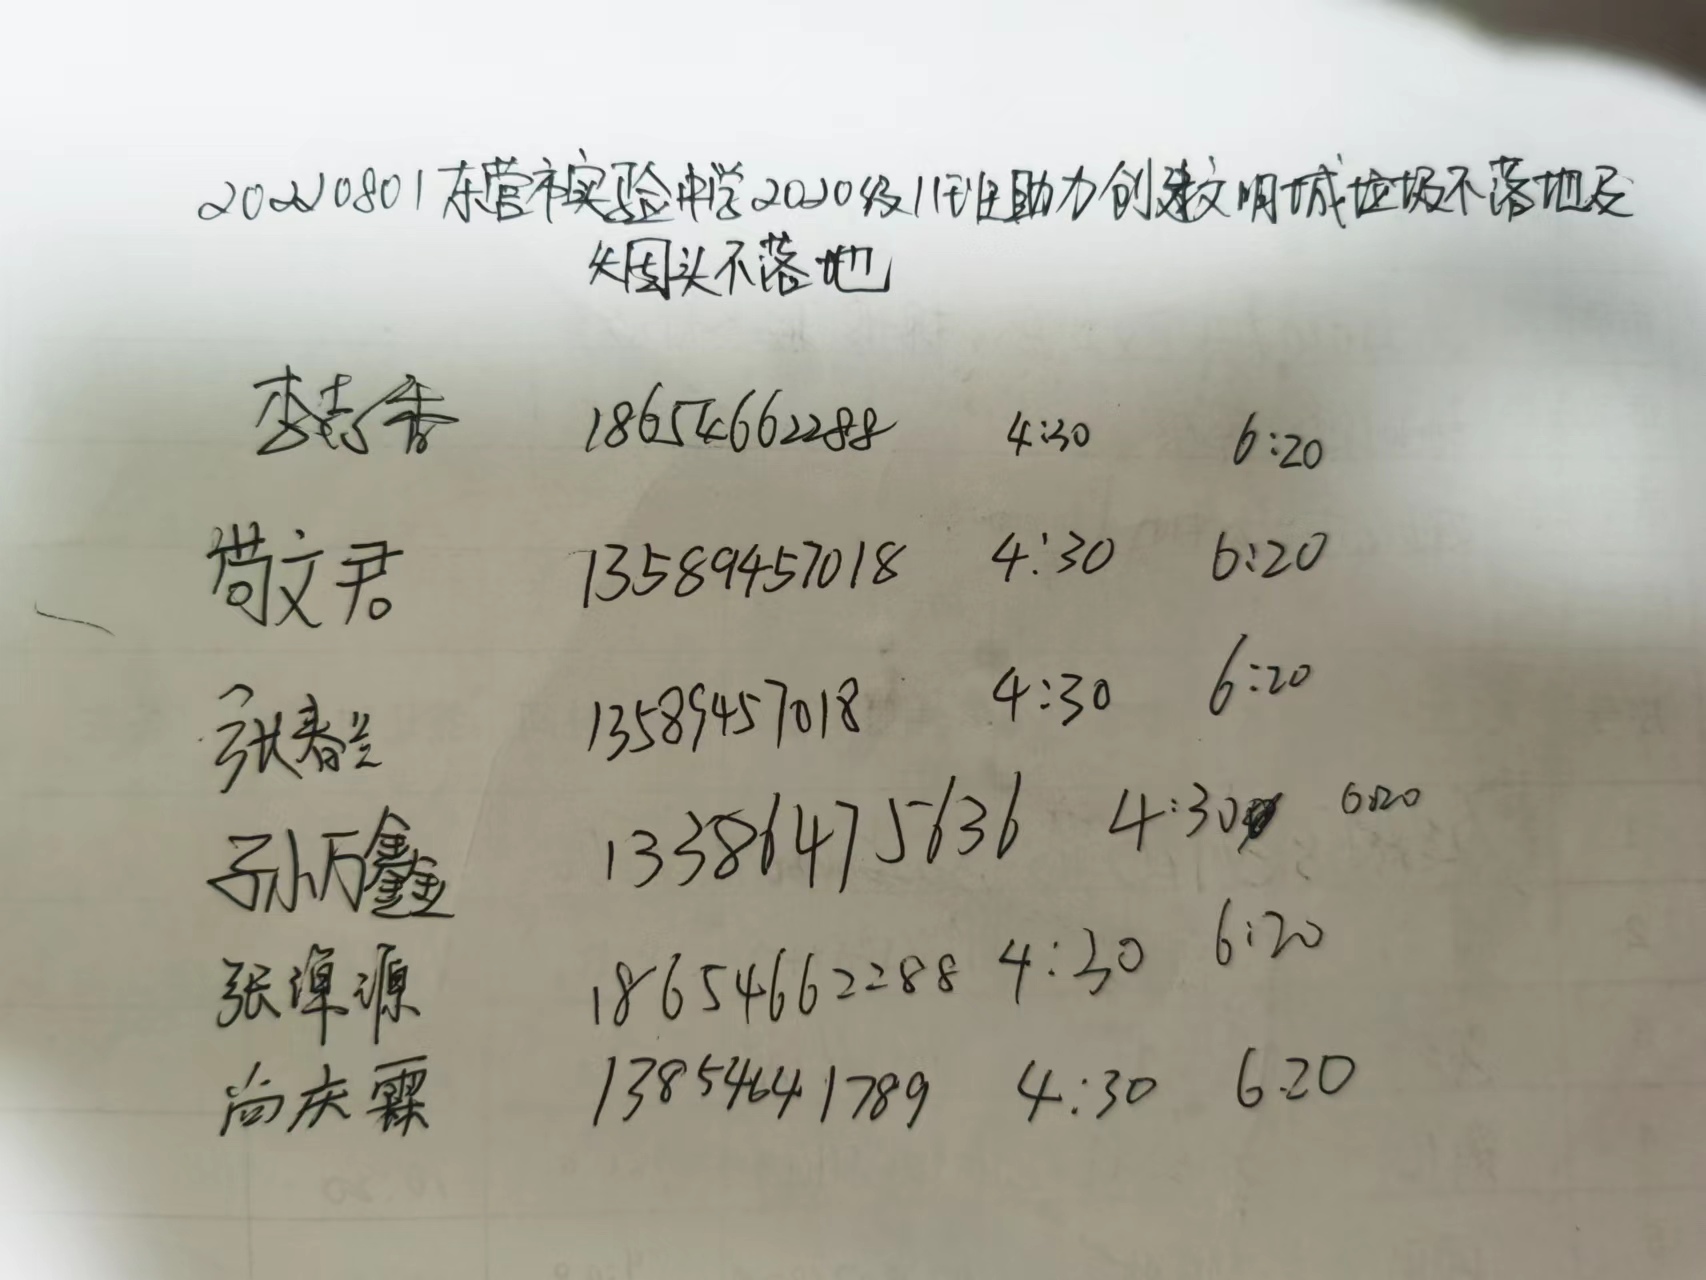 20220801东营市实验中学2020级11班助力创建文明城垃圾不落地及
烟头不落地
李秀香 18654662288 4:30 6:20
苟文君 13589457018 4:30 6:20
张春兰 13589457018 4:30 6:20
孙万鑫 13386475636 4:30 6:20
张淖源 18654662288 4:30 6:20
尚庆霖 13854641789 4:30 6:20